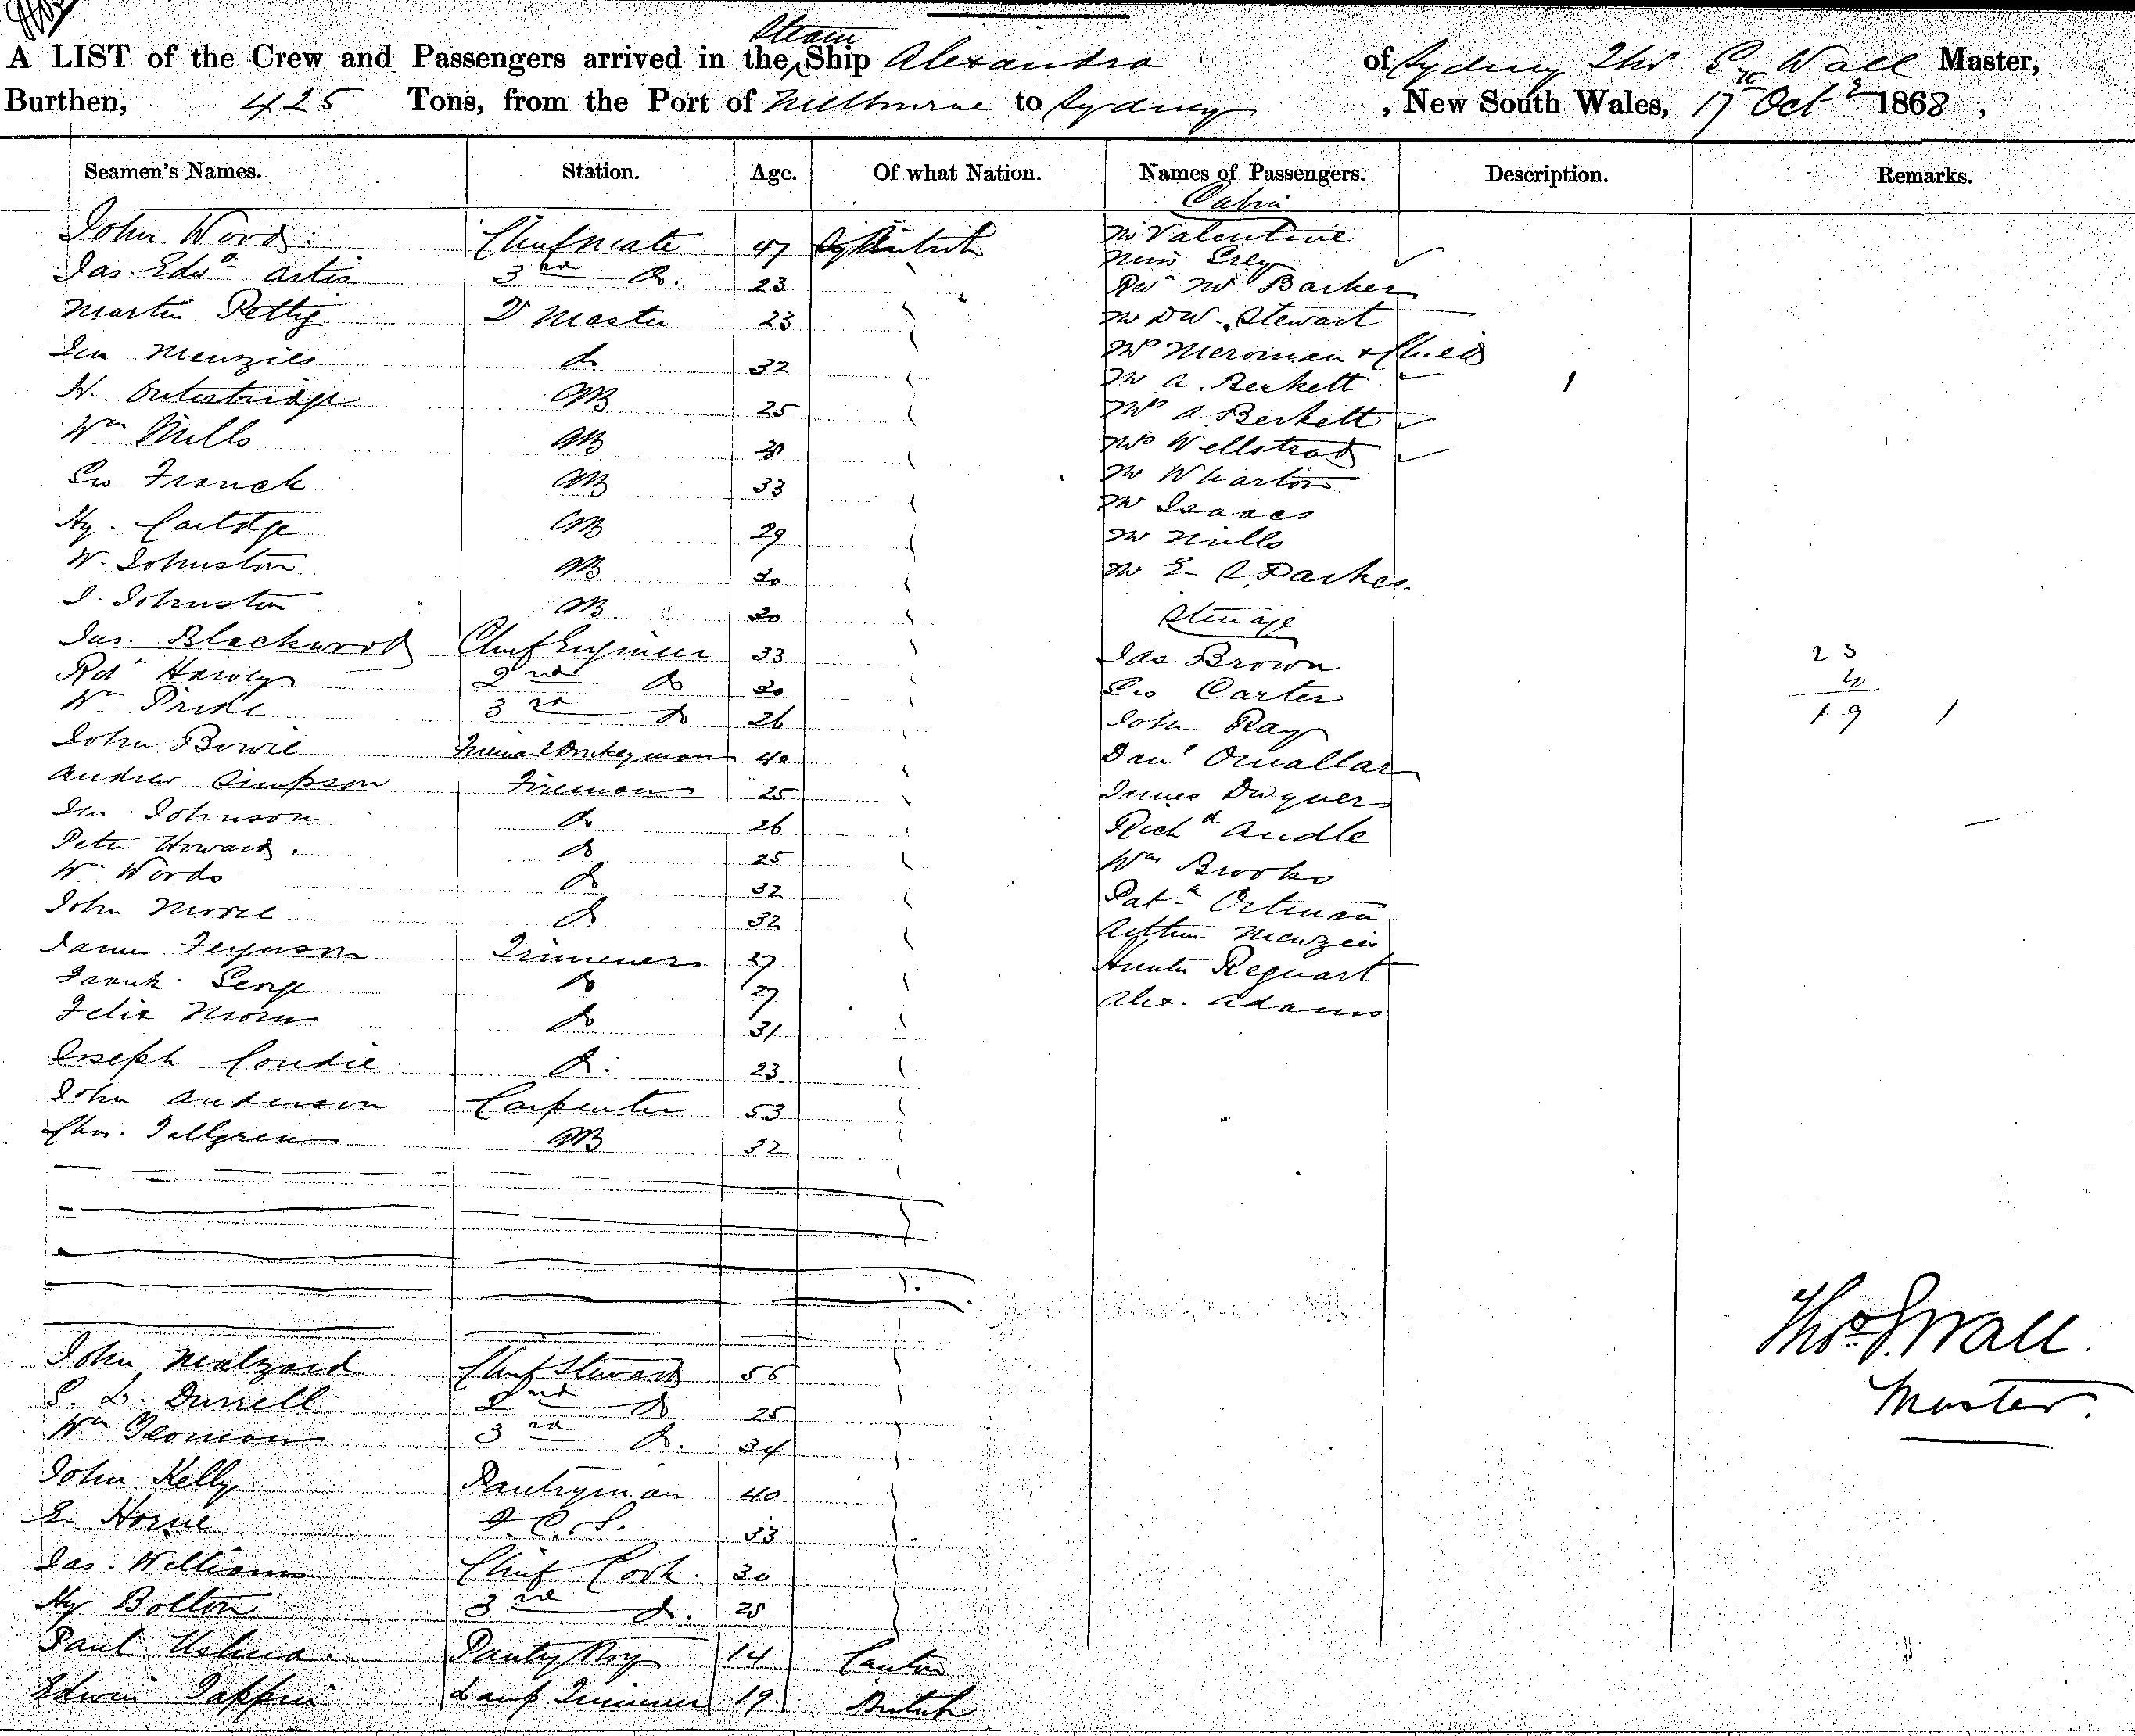 Steam
A LIST of the Crew and Passengers arrived in the Ship Alexandra of Sydney Wall Master,
Burthen, 425 Tons, from the Port of Melbourne to Sydney, New South Wales, 17th Octr 1868,
Seamen's Names. Station. Age. Of what Nation. Names of Passengers. Description. Remarks.
Cabin
John Woods Chief Mate 47 British Mr Valentine
Jas. Edwd Artis 3rd Do. 23 Miss Grey
Martin Pettig Master 23 Revd Mr Barker
Menzies Do 32 Mr D W. Stewart
H. Outerbridge AB 25 Mrs Merriman & Child
Wm Mills AB Mr A. Beckett
Geo Franck AB 33 Mrs A. Beckett
Hy. AB 29 Mrs Wellstead
W. Johnston AB 30 Mr Wharton
J. Johnston AB 30 Mr Isaacs
Jas. Blackwood Chief Engineer 33 Mr Mills
Rd 2nd Do 30 Mr E. Parkes
Wm Pride 3rd Do 26 Steerage
John Bowie Fireman & Donkeyman 40 Jas Brown
Andrew Simpson Fireman 25 Geo Carter
Jno. Johnson Do 26 John Ray
Peter Howard Do 25 Danl Omallar
Wm Woods Do 32 James Dwyer
John Do 32 Richd Audle
James Ferguson Trimmers 27 Wm Brooks
Frank George Do 27 Patk
Felix Do 31 Arthur Menzies
Joseph Condie Do. 23 Hunter
John Anderson Carpenter 53 Alex. Adams
Chas. Tallgren AB 32
23
4
19
John Malzard Chief Steward 56
S. L. Durrell 2nd Do 25
Wm Yeoman 3rd Do. 34
John Kelly Pantryman 40
E. Horne F. C. S. 33
Jas. Williams Chief Cook. 30
Hy Bolton Do. 28
Paul Pantry Boy 14 Canton
Edwin Tappin Lamp Trimmer 19 British
Thos S. Wall.
Master.